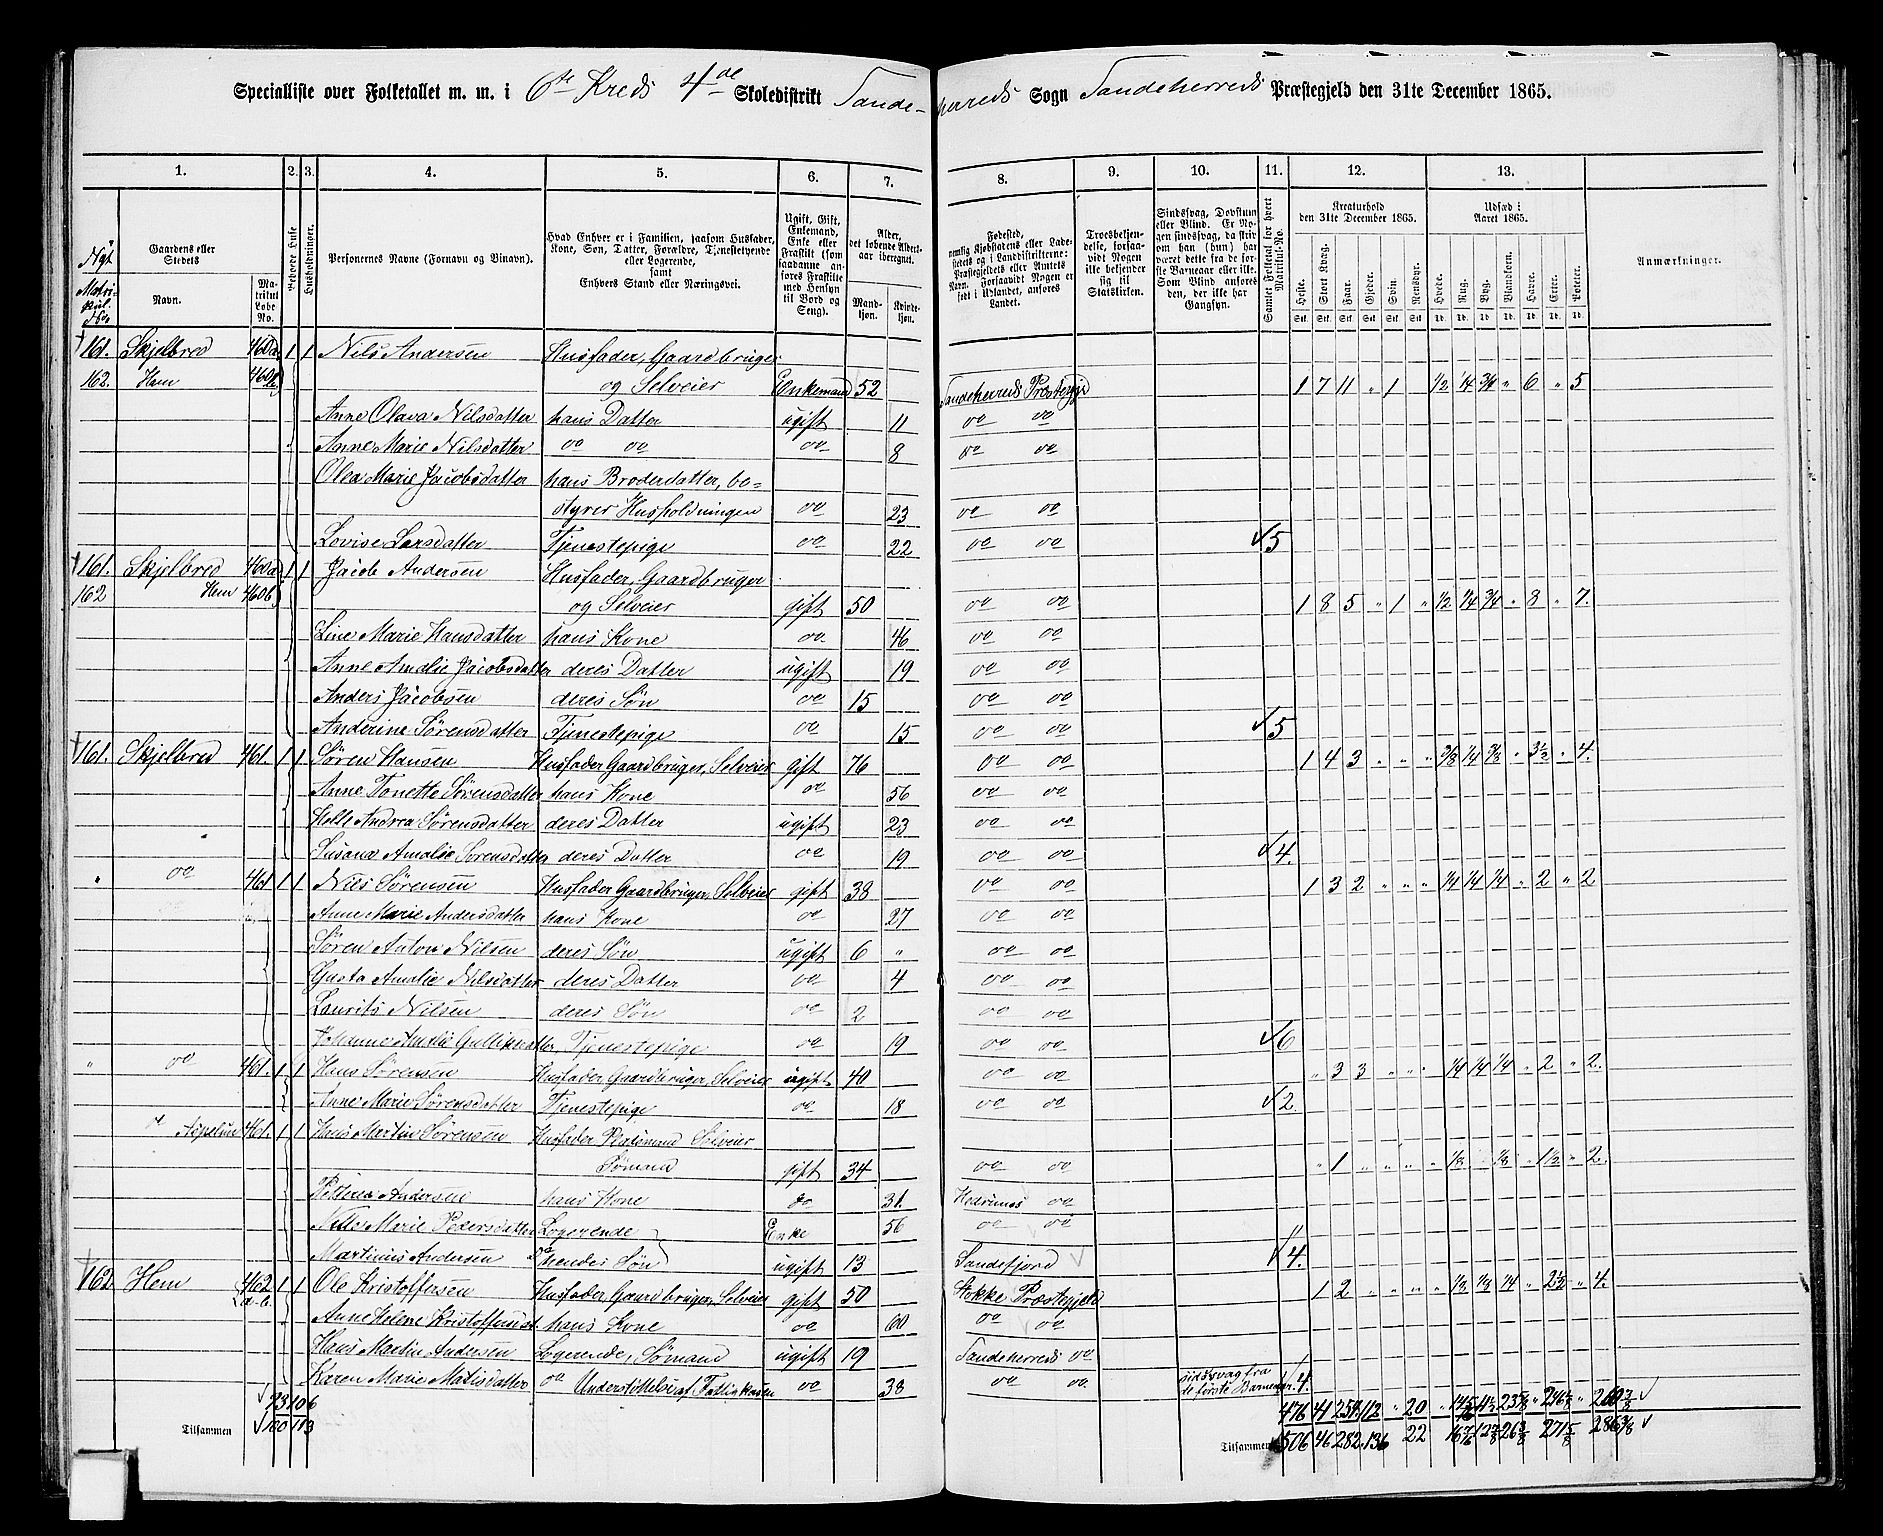 Specialliste over Folketallet m. m. i 6te Kreds 4de Skoledistrikt Sandeherreds Sogn Sandeherreds Præstegjeld den 31te December 1865.
1. 2. 3. 4. 5. 6. 7. 8. 9. 10. 11. 12. 13.
Nyt Matrikul. No. Gaardens eller Stedets Navn. Matrikul Løbe No. Beboede Huse Husholdninger. Personernes Navne (Fornavn og Tilnavn). Hvad Enhver er i Familien, saasom Husfader, Kone, Søn, Datter, Forældre, Tjenestetyende eller Logerende, samt Enhvers Stand eller Næringsvei. Ugift, Gift, Enkemand, Enke eller Fraskilt (som saadanne anføres Fraskilte med Hensyn til Bord og Seng). Alder, det løbende Aldersaar iberegnet. Mandkjøn. Kvindekjøn. Fødested, nemlig Kjøbstadens eller Ladestedets og i Landdistrikterne: Præstegjeldets eller Amtets Navn. Forsaavidt Nogen er født i Udlandet, anføres Landet. Troesbekjendelse, forsaavidt Nogen ikke bekjender sig til Statskirken. Sindssvag, Døvstum eller Blind. Er Nogen sindssvag, da skrives om han (hun) har været dette fra de første Barneaar eller ikke. Som Blind anføres den, der ikke har Gangsyn. Samlet Folketal for hvert Matrikul-No. Kreaturhold den 31te December 1865. Heste. Stort Kvæg. Faar. Gjeder. Svin. Rensdyr. Udsæd i Aaret 1865. Hvede. Rug. Byg. Blandkorn. Havre. Erter. Poteter. Anmærkninger.
161. Skjelbred 460a 1 1 Nils Andersen Husfader, Gaardbruger
162. Hem 460b og Selveier Enkemand 52 Sandeherreds Præstegj 1 7 11 " 1 1/2 1/4 3/4 " 6 " 5
Anne Olava Nilsdatter hans Datter ugift 11 do do
Anne Marie Nilsdatter do do do 8 do do
Olea Marie Jacobsdatter hans Broderdatter, be=
styrer Husholdningen do 23 do do
Lovise Larsdatter Tjenestepige do 22 do do 5
161. Skjelbred 460a 1 1 Jacob Andersen Husfader, Gaardbruger
162 Hem 460b og Selveier gift 50 do do 1 8 5 " 1 " 1/2 1/4 3/4 " 8 " 7.
Line Marie Hansdatter hans Kone do 46 do do
Anne Amalie Jacobsdatter deres Datter ugift 19 do do
Anders Jacobsen deres Søn do 15 do do
Anderine Sørensdatter Tjenestepige do 15 do do 5
161. Skjelbred 461. 1 1 Søren Hansen Husfader Gaardbruger, Selveier gift 76 do do 1 4 3 " " " 3/8 1/4 3/8 " 3 1/2 " 4.
Anne Tonette Sørensdatter hans Kone do 56 do do
Helle Andrea Sørensdatter deres Datter ugift 23 do do
Susana Amalie Sørensdatter deres Datter do 19 do do 4.
" do 461 1 1 Nils Sørensen Husfader Gaardbruger, Selveier gift 38 do do 1 3 2 " " " 1/4 1/4 1/4 " 2 " 2
Anne Marie Andersdatter hans Kone do 27 do do
Søren Anton Nilsen deres Søn ugift 6 " do do
Gusta Amalie Nilsdatter deres Datter do 4 do do
Laurits Nilsen deres Søn do 2 do do
Johanne Amalie Gulliksdatter, Tjenestepige do 19 do do 6
" do 461. 1 1 Hans Sørensen Husfader Gaardbruger, Selveier ugift 40 do do " 3 3 " " " 1/4 1/4 1/4 " 2 " 2.
Anne Marie Sørensdatter Tjenestepige do 18 do do 2
Aspelun 461. 1 1 Hans Martin Sørensen Husfader Pladsmand Selveier
Sømand gift 34 do do " 1 " " " " 1/8 " 1/8 " 1 1/2 " 2.
Andersen hans Kone do 31. Hedrums do
Marie Pedersdatter Logerende Enke 56 do do
Martinus Andersen hendes Søn ugift 13 Sandefjord 4.
162. Hem 462 a-b. 1 1 Ole Kristoffersen Husfader, Gaardbruger, Selveier gift 50 Stokke Præstegjeld 1 2 " " " " 1/8 1/8 1/4 " 2 1/2 " 4.
Anne Helene Kristoffersdt. hans Kone do 60 do do
Hans Martin Andersen Logerende, Sømand ugift 19 Sandeherreds do
Karen Marie Matisdatter do Understøttelse af Fattigkassen do 38 do do sindssvag fra de første Barneaar. 4.
93 106 476 41 254 112 " 20
Tilsammen 100 113 Tilsammen 506 46 282. 136 22